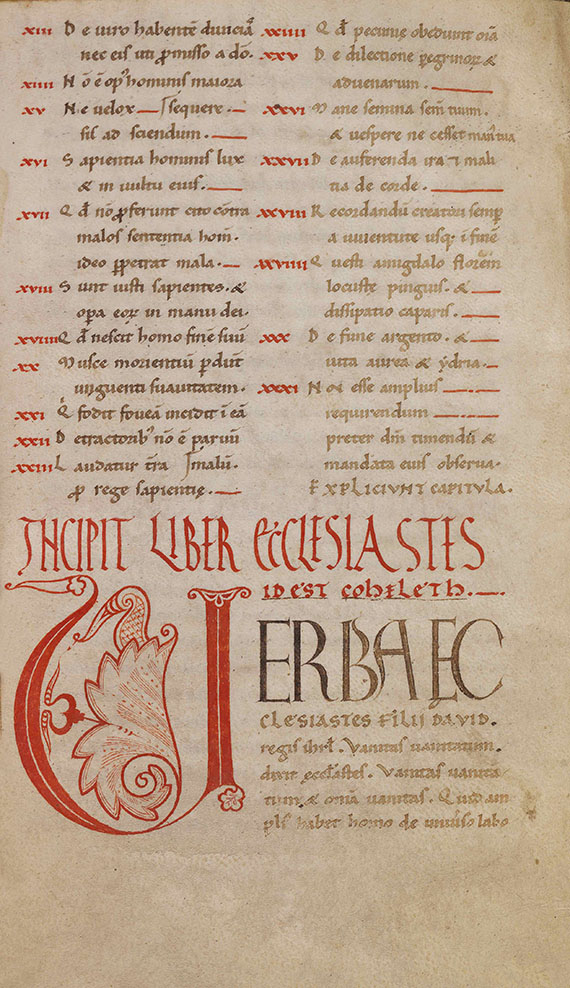 xiii De uiro habentē diuiciā
nec eis uti ꝑmisso a dō.
xiiii Nō ē opꝰ hominis maiora
xv Ne uelox sequere
fil ad sciendum.
xvi Sapientia hominis lux
& in uultu eius.
xvii Qđ nō ꝓferunt cito contra
malos sententia hom̄.
ideo ꝑpetrat mala.
xviii Sunt iusti sapientes. &
opa eorꝝ in manu dei.
xviiii Qđ nescit homo finē suū
xx Musce morientiū ꝑdunt
unguenti suauitatem.
xxi Q̄ fodit foueā incidit ī eā
xxii Detractoribꝰ nō ē paruū
xxiii Laudatur t̄ra malū.
ꝓ rege sapientię.
xxiiii Qđ pecunię obediunt oīa
xxv De dilectione ꝑegrinorꝝ &
aduenarum.
xxvi Mane semina sem̄ tuum.
& uespere ne cesset man tua
xxvii De auferenda ira & mali
tia de corde.
xxviii Recordandū creatori semꝑ
a uiuentute usq; ī finē
xxviiii Questi amigdalo florem
locustę pinguis. &
dissipatio caparis.
xxx De fune argenteo. &
uita aurea & ydria.
xxxi Non esse amplius
requirendum
preter dm̄ timendū &
mandata eius obserua.
EXPLICIUNT CAPITULA.
INCIPIT LIBER ECCLESIASTES
ID EST COHELETH.
UERBA EC
CLESIASTES FILII DAVID.
regis ihrl̄. Vanitas uanitatum.
dixit eccl̄astes. Vanitas uanita
tum & omīa uanitas. Quid am
pl̓s habet homo de uniuerso labo